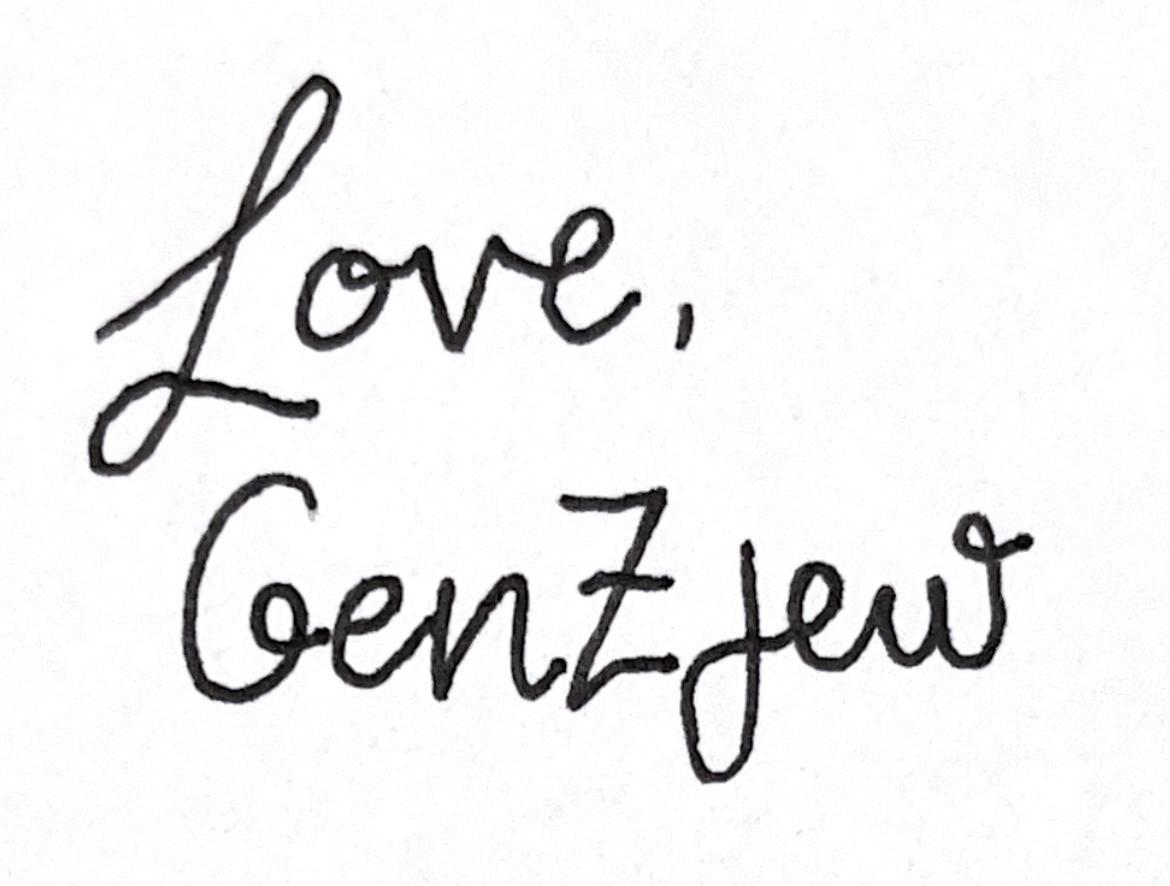 Love,
GenZjew